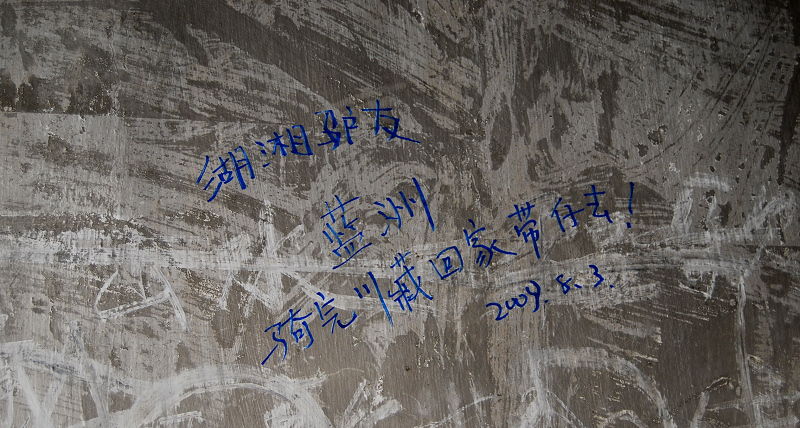 湖湘驴友
蓝洲
骑完川藏回家带仔去!
2009.8.3.